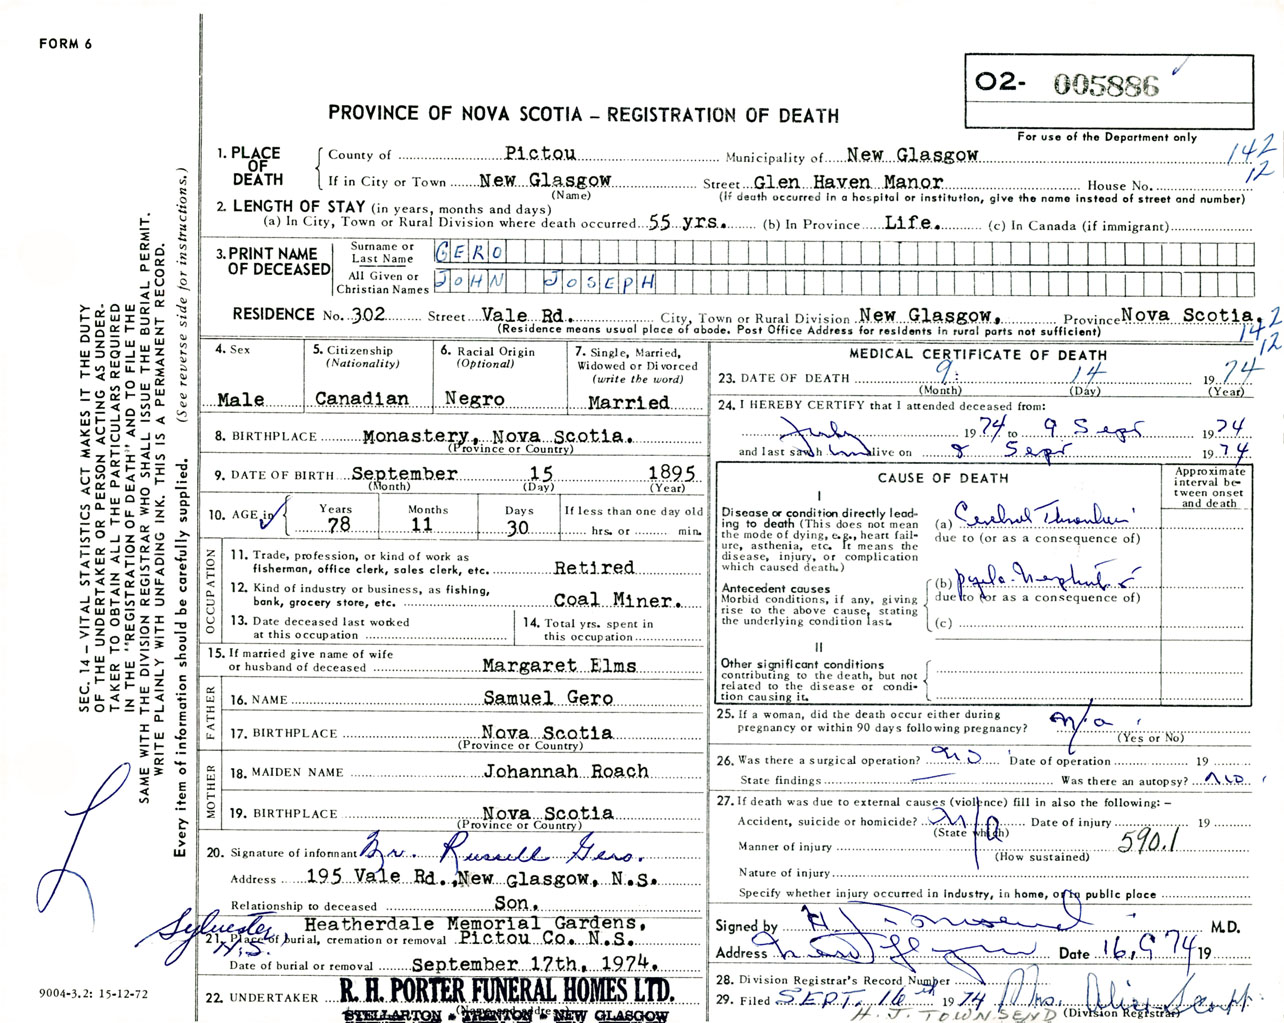 FORM 6
O2- 005886
For use of the Department only
PROVINCE OF NOVA SCOTIA – REGISTRATION OF DEATH
1. PLACE OF DEATH
County of Pictou Municipality of New Glasgow
142
12
If in City or Town New Glasgow Street Glen Haven Manor House No.
(Name) (If death occurred in a hospital or institution, give the name instead of street and number)
2. LENGTH OF STAY (in years, months and days)
(a) In City, Town or Rural Division where death occurred 55 yrs. (b) In Province Life. (c) In Canada (if immigrant)
3. PRINT NAME OF DECEASED
Surname or Last Name GERO
All Given or Christian Names JOHN JOSEPH
RESIDENCE No. 302 Street Vale Rd. City, Town or Rural Division New Glasgow, Province Nova Scotia.
(Residence means usual place of abode. Post Office Address for residents in rural parts not sufficient)
142
12
4. Sex
Male
5. Citizenship
(Nationality)
Canadian
6. Racial Origin
(Optional)
Negro
7. Single, Married,
Widowed or Divorced
(write the word)
Married
8. BIRTHPLACE Monastery, Nova Scotia.
(Province or Country)
9. DATE OF BIRTH September 15 1895
(Month) (Day) (Year)
10. AGE in
Years Months Days If less than one day old
78 11 30 hrs. or min.
OCCUPATION
11. Trade, profession, or kind of work as
fisherman, office clerk, sales clerk, etc. Retired
12. Kind of industry or business, as fishing,
bank, grocery store, etc. Coal Miner.
13. Date deceased last worked
at this occupation
14. Total yrs. spent in
this occupation
15. If married give name of wife
or husband of deceased Margaret Elms
FATHER
16. NAME Samuel Gero
17. BIRTHPLACE Nova Scotia
(Province or Country)
MOTHER
18. MAIDEN NAME Johannah Roach
19. BIRTHPLACE Nova Scotia
(Province or Country)
20. Signature of informant Mr. Russell Gero.
Address 195 Vale Rd., New Glasgow, N.S.
Relationship to deceased Son.
Sylvester N.S.
Heatherdale Memorial Gardens,
21. Place of burial, cremation or removal Pictou Co. N.S.
Date of burial or removal September 17th, 1974.
22. UNDERTAKER R. H. PORTER FUNERAL HOMES LTD.
(Name and address)
STELLARTON - TRENTON - NEW GLASGOW
MEDICAL CERTIFICATE OF DEATH
23. DATE OF DEATH 9 14 1974
(Month) (Day) (Year)
24. I HEREBY CERTIFY that I attended deceased from:
July 1974 to 9 Sept 1974
and last saw him alive on 8 Sept 1974
CAUSE OF DEATH
Approximate
interval be-
tween onset
and death
I
Disease or condition directly lead-
ing to death (This does not mean
the mode of dying, e.g., heart fail-
ure, asthenia, etc. It means the
disease, injury, or complication
which caused death.)
(a) Cerebral Thrombosis
due to (or as a consequence of)
Antecedent causes
Morbid conditions, if any, giving
rise to the above cause, stating
the underlying condition last.
(b) pyelo-nephritis
due to (or as a consequence of)
(c)
II
Other significant conditions
contributing to the death, but not
related to the disease or condi-
tion causing it.
25. If a woman, did the death occur either during
pregnancy or within 90 days following pregnancy? n/a
(Yes or No)
26. Was there a surgical operation? NO Date of operation 19
State findings — Was there an autopsy? NO
27. If death was due to external causes (violence) fill in also the following: –
Accident, suicide or homicide? N/A Date of injury 19
(State which)
Manner of injury 590.1
(How sustained)
Nature of injury
Specify whether injury occurred in industry, in home, or in public place
Signed by H J Townsend M.D.
Address New Glasgow Date 16,9 74 19
28. Division Registrar's Record Number
29. Filed SEPT. 16th 1974 Mrs. Scott
H. J. TOWNSEND (Division Registrar)
SEC. 14 – VITAL STATISTICS ACT MAKES IT THE DUTY
OF THE UNDERTAKER OR PERSON ACTING AS UNDER-
TAKER TO OBTAIN ALL THE PARTICULARS REQUIRED
IN THE "REGISTRATION OF DEATH" AND TO FILE THE
SAME WITH THE DIVISION REGISTRAR WHO SHALL ISSUE THE BURIAL PERMIT.
WRITE PLAINLY WITH UNFADING INK. THIS IS A PERMANENT RECORD.
Every item of information should be carefully supplied. (See reverse side for instructions.)
9004-3.2: 15-12-72